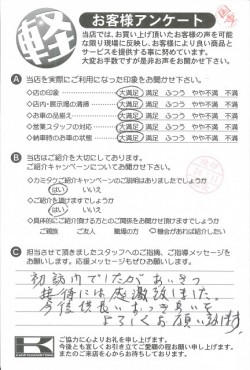 軽
お客様アンケート
当店では、お買い上げ頂いたお客様の声を可能
な限り現場に反映し、お客様により良い商品と
サービスを提供する事に努めています。
大変お手数ですが是非お声をお聞かせ下さい。
A 当店を実際にご利用になった印象をお聞かせ下さい。
◇店の印象 大満足 満足 ふつう やや不満 不満
◇店内・展示場の清掃 大満足 満足 ふつう やや不満 不満
◇お車の品揃え 大満足 満足 ふつう やや不満 不満
◇営業スタッフの対応 大満足 満足 ふつう やや不満 不満
◇納車時のお車の状態 大満足 満足 ふつう やや不満 不満
B 当店はご紹介を大切にしております。
ご紹介キャンペーンについてお聞かせ下さい。
◇カミタケご紹介キャンペーンのご説明はありましたでしょうか
はい いいえ
◇ご紹介を頂けますでしょうか
はい いいえ
◇具体的にご紹介頂ける方とのご関係をお聞かせ頂けますでしょうか
ご親族 ご友人 職場の方 機会があれば紹介したい
C 担当させて頂きましたスタッフへのご指摘、ご指導メッセージを
お願いします。応援メッセージもぜひお願いします。
初訪問でしたがあいさつ
接侍には感激致しました。
今後供長いおつきあいを
よろしくお願い致します
K
ご協力に心よりお礼を申し上げます。
今後とも宜しくお引き立てご愛顧の程お願い申し上げます。
またのご来店を心からお待ちしております。